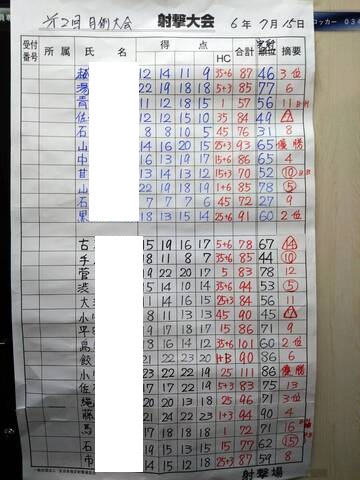 ロッカー 03
射撃大会
第2回 月例大会
6年7月15日
受付番号 所属 氏名 得点 HC 合計 実射順位 摘要
越 12 14 11 9 35+6 87 46 3位
湯 22 19 18 18 5+3 85 77 6
青 11 12 18 15 1 57 56 11
佐 12 12 15 35 84 49
石 8 8 10 5 45 76 31 8
山 14 16 20 15 25+3 93 65 優勝
中 16 13 19 17 15+6 86 65 4
甘 13 14 13 12 15+3 70 52 10
山 22 19 18 19 1+6 85 78 5
石 7 7 7 6 45 72 27 9
黒 18 13 15 14 25+6 91 60 2位
古 15 19 16 17 5+6 78 67 14
手 18 11 8 7 35+6 85 44 10
菅 19 22 20 17 5 83 78 12
渋 15 35+6 94 53 5
大 14 16 25+3 84 56 11
小 8 11 13 13 45 90 45
平 19 18 17 17 15 86 71 9
島 18 16 14 12 35+6 101 60 2位
飯 21 22 23 20 1+3 90 86 6
小 23 22 22 19 25 111 86 優勝
佐 17 17 22 19 5+3 83 75 13
縄 20 20 18 13 25 96 71 3位
藤 24 22 21 23 1+3 94 90 4
馬 17 18 18 18 1 72 71 16
石 15 19 15 13 15 77 62 15
市 14 15 12 18 25+3 87 59 8
射撃場